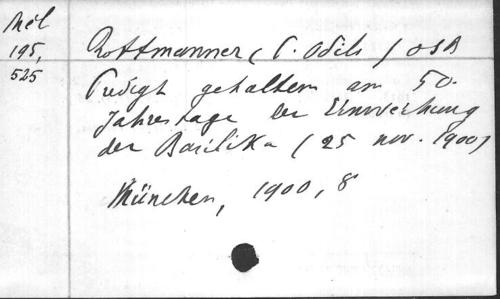 Mél
195,
525
Rottmanner ( P. Odilo ) OSB
Predigt gehalten am 50.
Jahrestage der Einweihung
der Basilika ( 25 nov. 1900)
München, 1900, 8